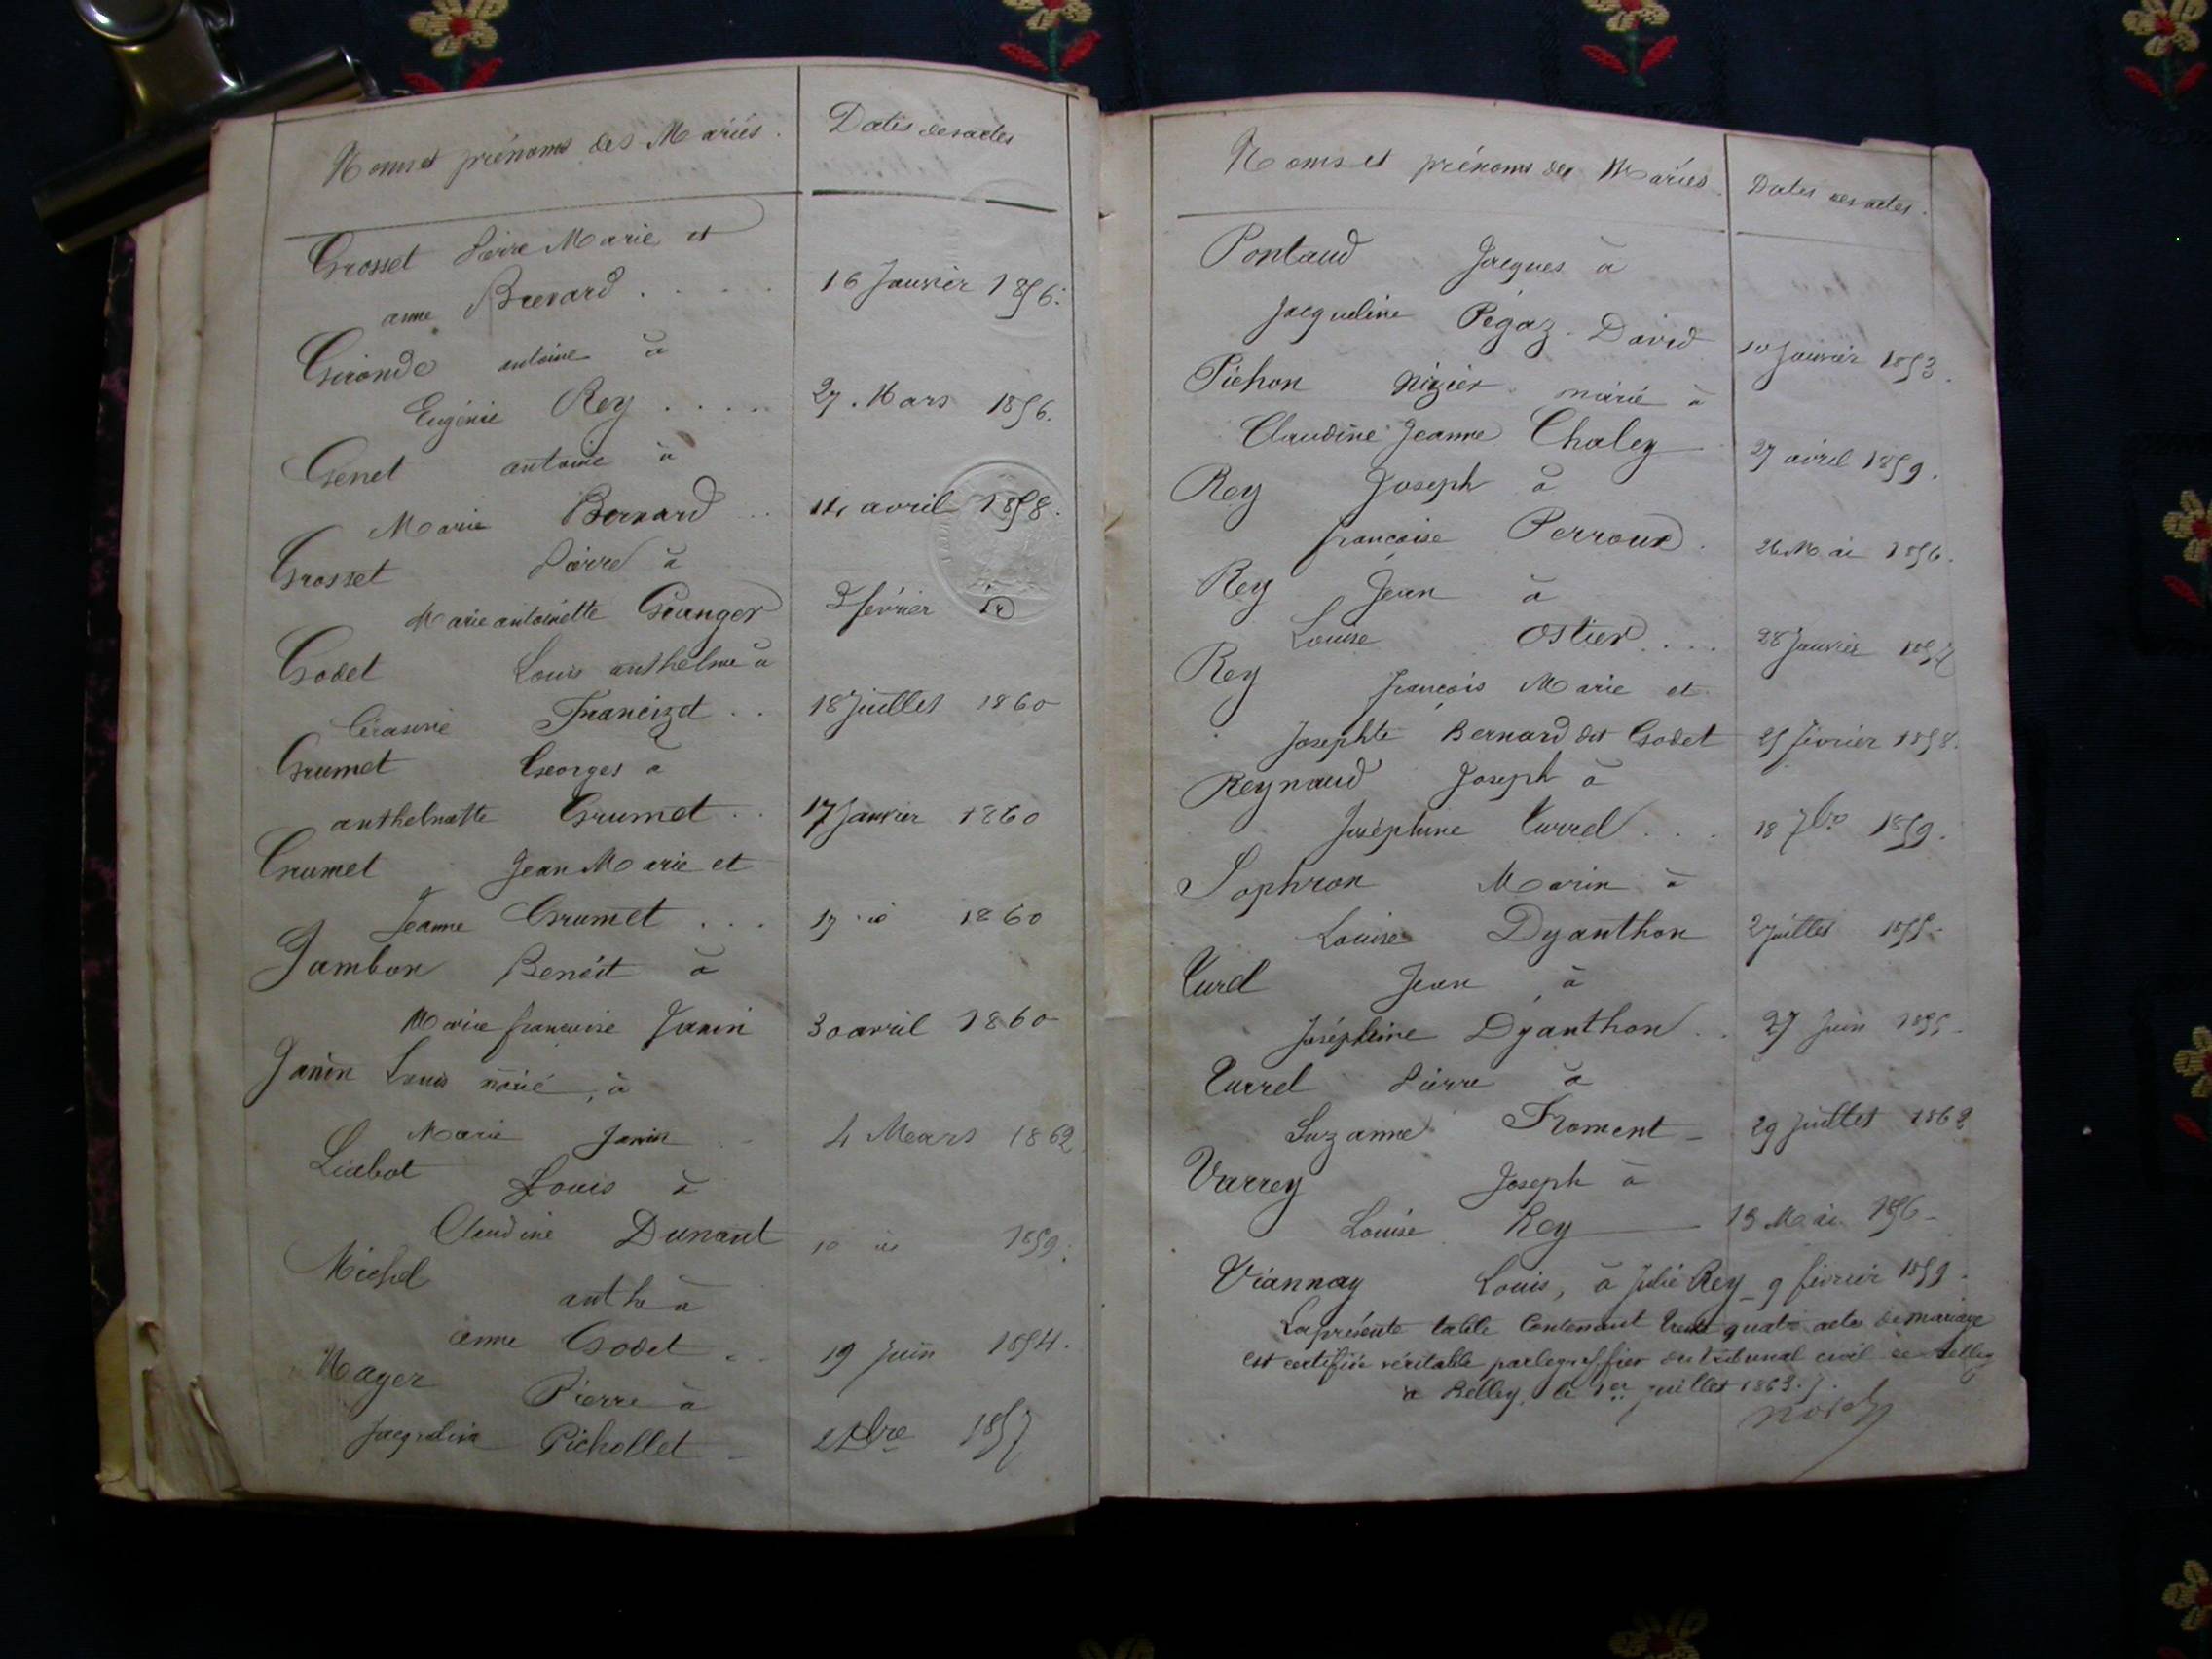 Noms et prénoms des Mariés. Dates des actes
Grosset Pierre Marie et
anne Brevard ..... 16 Janvier 1856.
Gironde antoine à
Eugénie Rey ..... 27 Mars 1856.
Genet antoine à
Marie Bernard .. avril 1858.
Grosset Pierre à
Marie antoinette Granger 2 février id
Godet Louis anthelme à
Francizet .. 18 Juillet 1860
Grumet Georges à
anthelmette Grumet .. 17 Janvier 1860
Grumet Jean Marie et
Jeanne Grumet ... 17 id 1860
Jambon Benoit à
Marie françoise Janin 30 avril 1860
Janin Louis marié, à
Marie Janin 4 Mars 1862
Liabot Louis à
Claudine Dunant 10 id 1859.
Michel anthe à
anne Godet .. 19 juin 1854.
Nager Pierre à
Jacqueline Pichollet 1857
Noms et prénoms des Mariés. Dates des actes.
Pontaud Jacques à
Jacqueline Pégaz-David 10 Janvier 1853.
Pichon Nizier marié à
Claudine Jeanne Chaley 27 avril 1859.
Rey Joseph à
françoise Perroux. 26 Mai 1856.
Rey Jean à
Louise Ostier .... 28 Janvier
Rey françois Marie et
Josephte Bernard dit Godet 25 février 1858.
Reynaud Joseph à
Joséphine Turrel ... 18 7bre 1859.
Sophron Marin à
Louise Dyanthon 2 Juillet 1855.
Turel Jean à
Joséphine Dyanthon .. 27 Juin 1855
Turrel Pierre à
Suzanne Froment 29 juillet 1862
Varrey Joseph à
Louise Rey 13 Mai 1856
Viannay Louis, à Julie Rey 9 février 1859.
La présente table contenant trente quatre actes de mariage
est certifiée véritable par le greffier du tribunal civil de Belley
a Belley, le 1er juillet 1863.